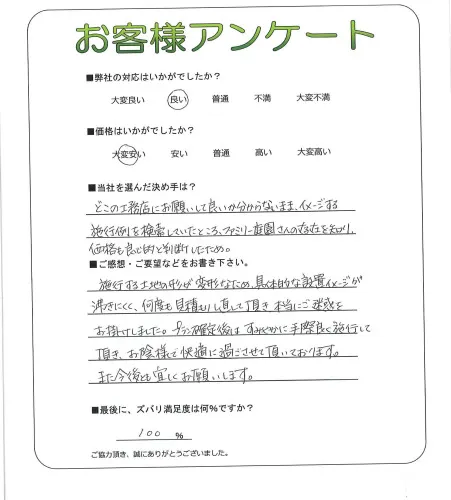 お客様アンケート
■弊社の対応はいかがでしたか？
大変良い 良い 普通 不満 大変不満
■価格はいかがでしたか？
大変安い 安い 普通 高い 大変高い
■当社を選んだ決め手は？
どこの工務店にお願いして良いか分からないまま、イメージする
施行例を検索していたところ、ファミリー庭園さんの存在を知り、
価格も良心的と判断したため。
■ご感想・ご要望などをお書き下さい。
施行する土地の形が変形なため、具体的な設置イメージが
沸きにくく、何度も見積もりし直して頂き本当にご迷惑を
お掛けしました。プラン確定後はすみやかに手際良く施行して
頂き、お陰様で快適に過ごさせて頂いております。
また今後とも宜しくお願いします。
■最後に、ズバリ満足度は何％ですか？
100 ％
ご協力頂き、誠にありがとうございました。